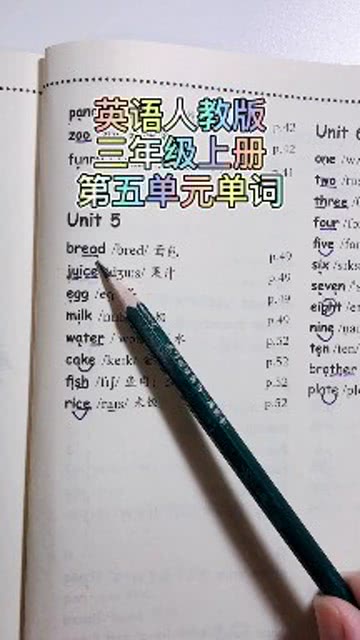 英语人教版
三年级上册
第五单元单词
zoo
p.42
Unit 5
bread /bred/ 面包 p.49
juice /dʒuːs/ 果汁 p.49
egg p.49
milk p.49
water 水 p.52
cake /keɪk/ p.52
fish /fɪʃ/ 鱼肉; p.52
rice /raɪs/ 米饭 p.52
Unit 6
one
two
three
four
five
six
seven
eight
nine
ten
brother
plate